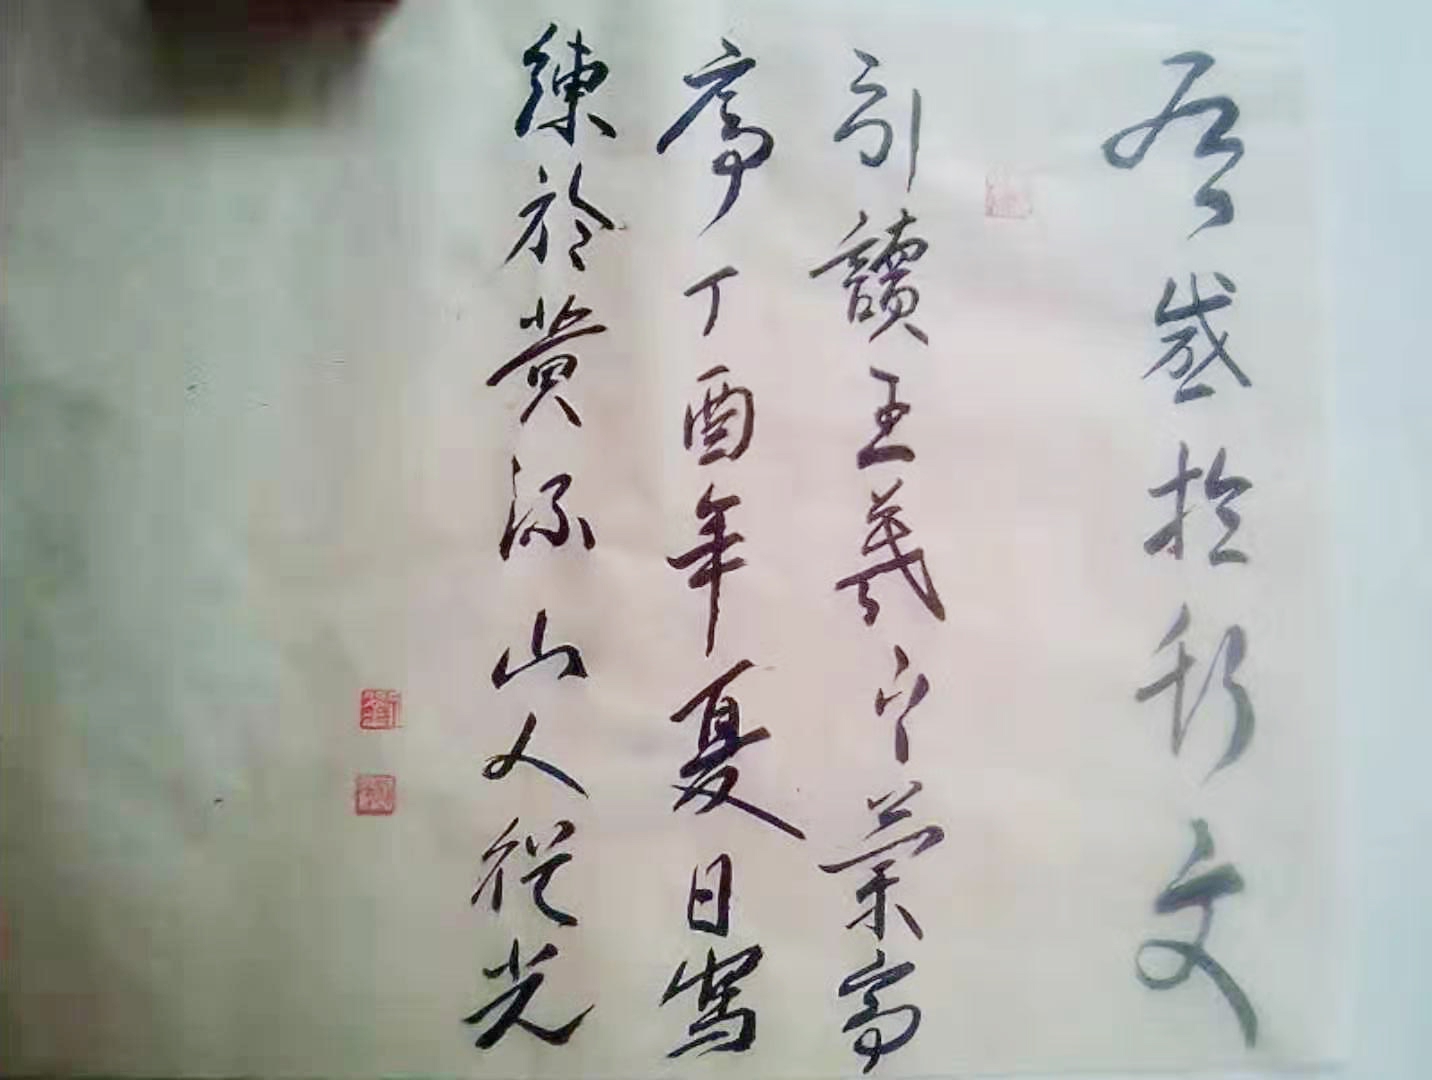 有感於斯文
引讀王羲之蘭亭
序丁酉年夏日寫
練於黄源山人從光